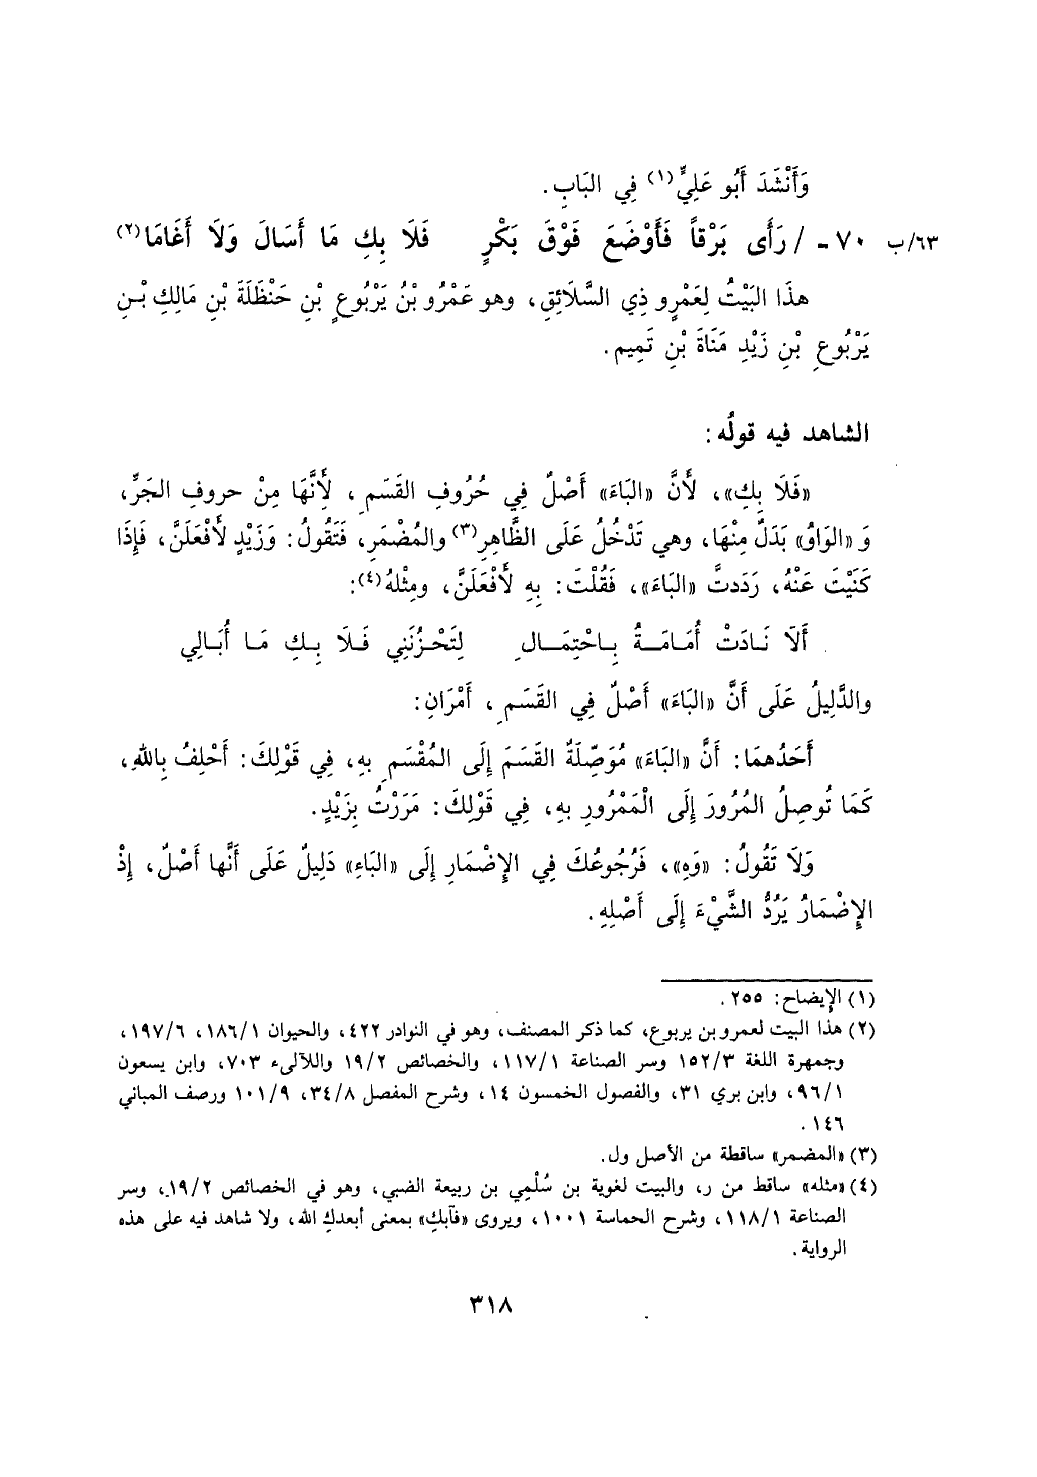 وَأَنْشَدَ أَبُو عَلِيٍّ(١) فِي البَابِ.
٦٣/ب ٧٠ - / رَأَى بَرْقاً فَأَوْضَعَ فَوْقَ بَكْرٍ فَلَا بِكِ مَا أَسَالَ وَلَا أَغَامَا(٢)
هذَا البَيْتُ لِعَمْرٍو ذِي السَّلَائِقِ، وهو عَمْرُو بْنُ يَرْبُوعٍ بْنِ حَنْظَلَةَ بْنِ مَالِكِ بْنِ
يَرْبُوعِ بْنِ زَيْدِ مَنَاةَ بْنِ تَمِيم.
الشاهد فيه قولُه:
«فَلَا بِكِ»، لأَنَّ «البَاءَ» أَصْلٌ فِي حُرُوفِ القَسَمِ، لأَنَّهَا مِنْ حروفِ الجَرِّ،
وَ «الوَاوُ» بَدَلٌ مِنْهَا، وهي تَدْخُلُ عَلَى الظَّاهِرِ(٣) والمُضْمَرِ، فَتَقُولُ: وَزَيْدٍ لأَفْعَلَنَّ، فَإِذَا
كَنَيْتَ عَنْهُ، رَدَدتَّ «البَاءَ»، فَقُلْتَ: بِهِ لأَفْعَلَنَّ، ومِثْلهُ(٤):
أَلَا نَادَتْ أُمَامَةُ بِاحْتِمَالِ لِتَحْزُنَنِي فَلَا بِكِ مَا أُبَالِي
والدَّلِيلُ عَلَى أَنَّ «البَاءَ» أَصْلٌ فِي القَسَمِ، أَمْرَانِ:
أَحَدُهمَا: أَنَّ «البَاءَ» مُوَصِّلَةٌ القَسَمَ إِلَى المُقْسَمِ بِهِ، فِي قَوْلِكَ: أَحْلِفُ بِاللهِ،
كَمَا تُوصِلُ المُرُورَ إِلَى الْمَمْرُورِ بهِ، فِي قَوْلِكَ: مَرَرْتُ بِزَيْدٍ.
وَلَا تَقُولُ: «وَهِ»، فَرُجُوعُكَ فِي الإِضْمَارِ إِلَى «البَاءِ» دَلِيلٌ عَلَى أَنَّها أَصْلٌ، إِذْ
الإِضْمَارُ يَرُدُّ الشَّيْءَ إِلَى أَصْلِهِ.
(١) الإيضاح: ٢٥٥.
(٢) هذا البيت لعمرو بن يربوع، كما ذكر المصنف، وهو في النوادر ٤٢٢، والحيوان ١٨٦/١، ١٩٧/٦،
وجمهرة اللغة ١٥٢/٣ وسر الصناعة ١١٧/١، والخصائص ١٩/٢ واللآلىء ٧٠٣، وابن يسعون
٩٦/١، وابن بري ٣١، والفصول الخمسون ١٤، وشرح المفصل ٣٤/٨، ١٠١/٩ ورصف المباني
١٤٦.
(٣) «المضمر» ساقطة من الأصل ول.
(٤) «مثله» ساقط من ر، والبيت لغوية بن سُلْمِي بن ربيعة الضبي، وهو في الخصائص ١٩/٢، وسر
الصناعة ١١٨/١، وشرح الحماسة ١٠٠١، ويروى «فآبكِ» بمعنى أبعدكِ الله، ولا شاهد فيه على هذه
الرواية.
٣١٨